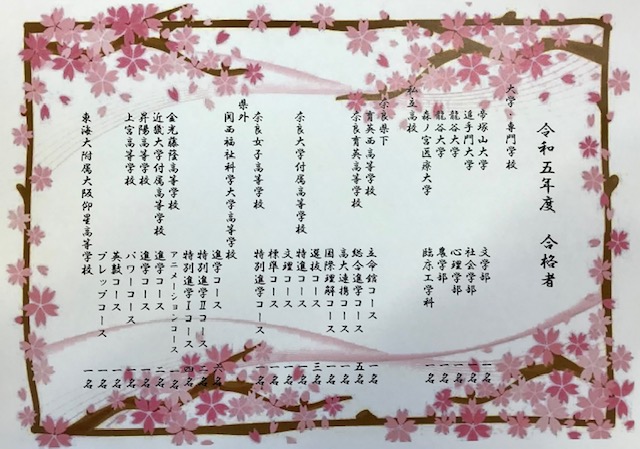 令和五年度 合格者
大学・専門学校
帝塚山大学 文学部 一名
追手門大学 社会学部 一名
龍谷大学 心理学部 一名
龍谷大学 農学部 一名
森ノ宮医療大学 臨床工学科 一名
私立高校
奈良県下
育英西高等学校 立命館コース 一名
奈良育英高等学校 総合進学コース 五名
高大連携コース 一名
国際理解コース 一名
選抜コース 三名
奈良大学付属高等学校 特進コース 一名
文理コース 一名
標準コース 一名
奈良女子高等学校 特別進学コース 一名
県外
関西福祉科学大学高等学校 進学コース 六名
特別進学Ⅱコース 二名
特別進学Ⅰコース 四名
金光藤蔭高等学校 アニメーションコース 一名
近畿大学付属高等学校 進学コース 二名
昇陽高等学校 進学コース 一名
上宮高等学校 パワーコース 一名
英数コース 一名
プレップコース 一名
東海大附属大阪仰星高等学校 一名